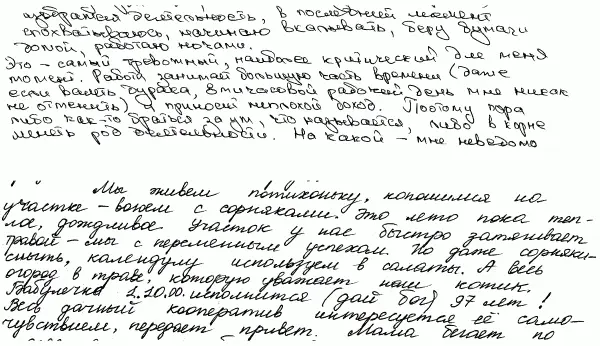 избраться деятельность, в последний момент
спохватываюсь, начинаю вкалывать, беру бумаги
домой, работаю ночами.
Это - самый тревожный, наиболее критический для меня
момент. Работа занимает большую часть времени (даже
если валять дурака, 8мичасовой рабочий день мне никак
не отменить) и приносит неплохой доход. Поэтому пора
либо как-то браться за ум, что называется, либо в корне
менять род деятельности. На какой - мне неведомо
Мы живем потихоньку, копошимся на
участке - воюем с сорняками. Это лето пока теп-
лое, дождливое участок у нас быстро затягивает
травой - мы с переменным успехом. Но даже сорняки -
сныть, календулу используем в салаты. А весь
огород в траве, которую уважает наш котик.
Бабулечке 2.10.00. исполнится (дай бог) 97 лет!
Весь дачный кооператив интересуется её само-
чувствием, передает привет. Мама бегает по